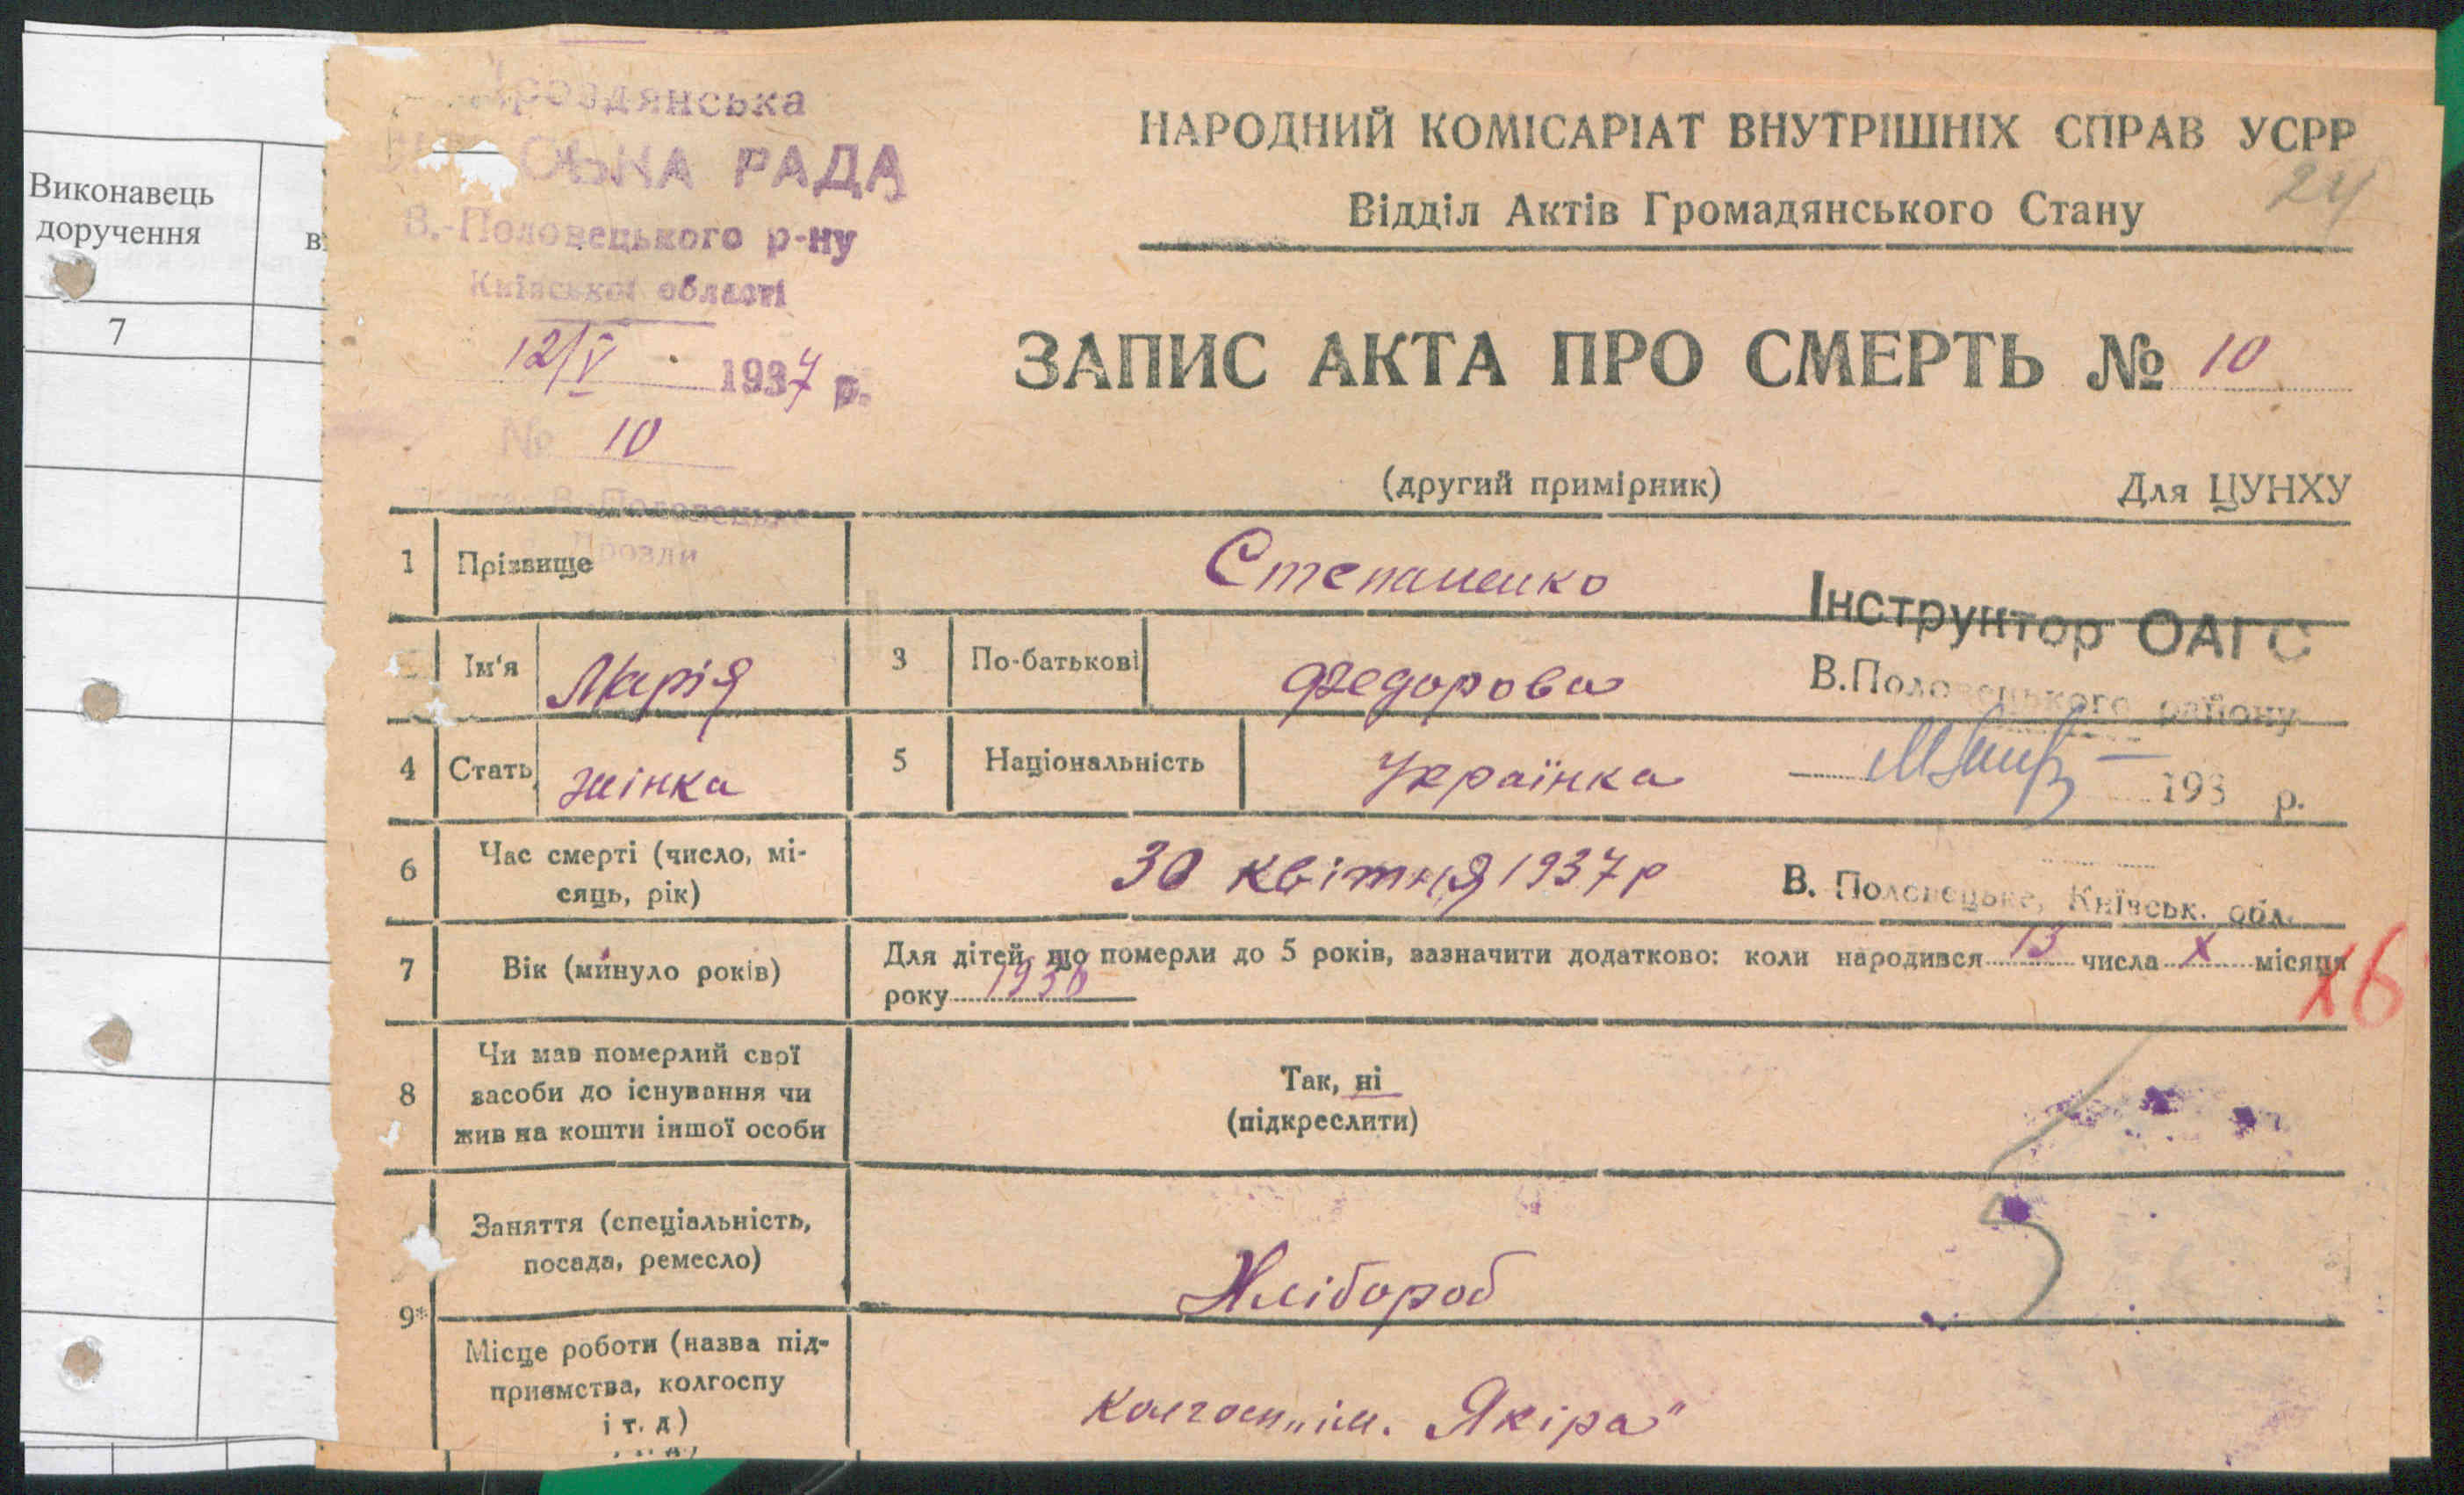 Виконавець
доручення
7
РАДА
В.-Половецького р-ну
Київської області
12/V 1937 р.
№ 10
Дрозди
НАРОДНИЙ КОМІСАРІАТ ВНУТРІШНІХ СПРАВ УСРР
24
Відділ Актів Громадянського Стану
ЗАПИС АКТА ПРО СМЕРТЬ № 10
(другий примірник) Для ЦУНХУ
1 Прізвище Степаненко
Інструктор ОАГС
Ім'я Марія 3 По-батькові Федорова
В.Половецького району
4 Стать жінка 5 Національність Українка
193 р.
6 Час смерті (число, мі-
сяць, рік) 30 квітня 1937 р
В. Половецьке, Київськ. обл.
7 Вік (минуло років) Для дітей, що померли до 5 років, зазначити додатково: коли народився 13 числа X місяця
року 1936
х6
8 Чи мав померлий свої
засоби до існування чи
жив на кошти іншої особи
Так, ні
(підкреслити)
Заняття (спеціальність,
посада, ремесло) Хлібороб
9*
Місце роботи (назва під-
приємства, колгоспу
і т. д)
Колгосп „ім. Якіра"